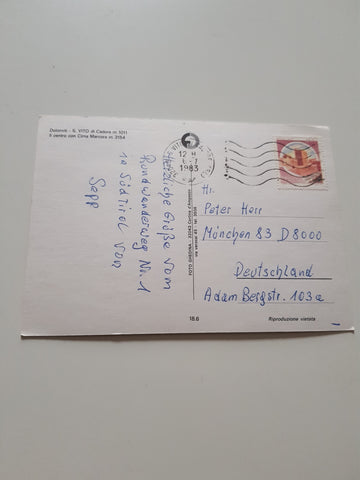 Dolomiti - S. VITO di Cadore m. 1011
Il centro con Cima Marcora m. 3154
Herzliche Grüße vom
Rundwanderweg Nr. 1
in Südtirol von
Sepp
12 H
1983
FOTO GHEDINA - 32043 Cortina d'Ampezzo
Hr.
Peter Herr
München 83 D 8000
Deutschland
Adam Bergstr. 103a
18.6
Riproduzione vietata